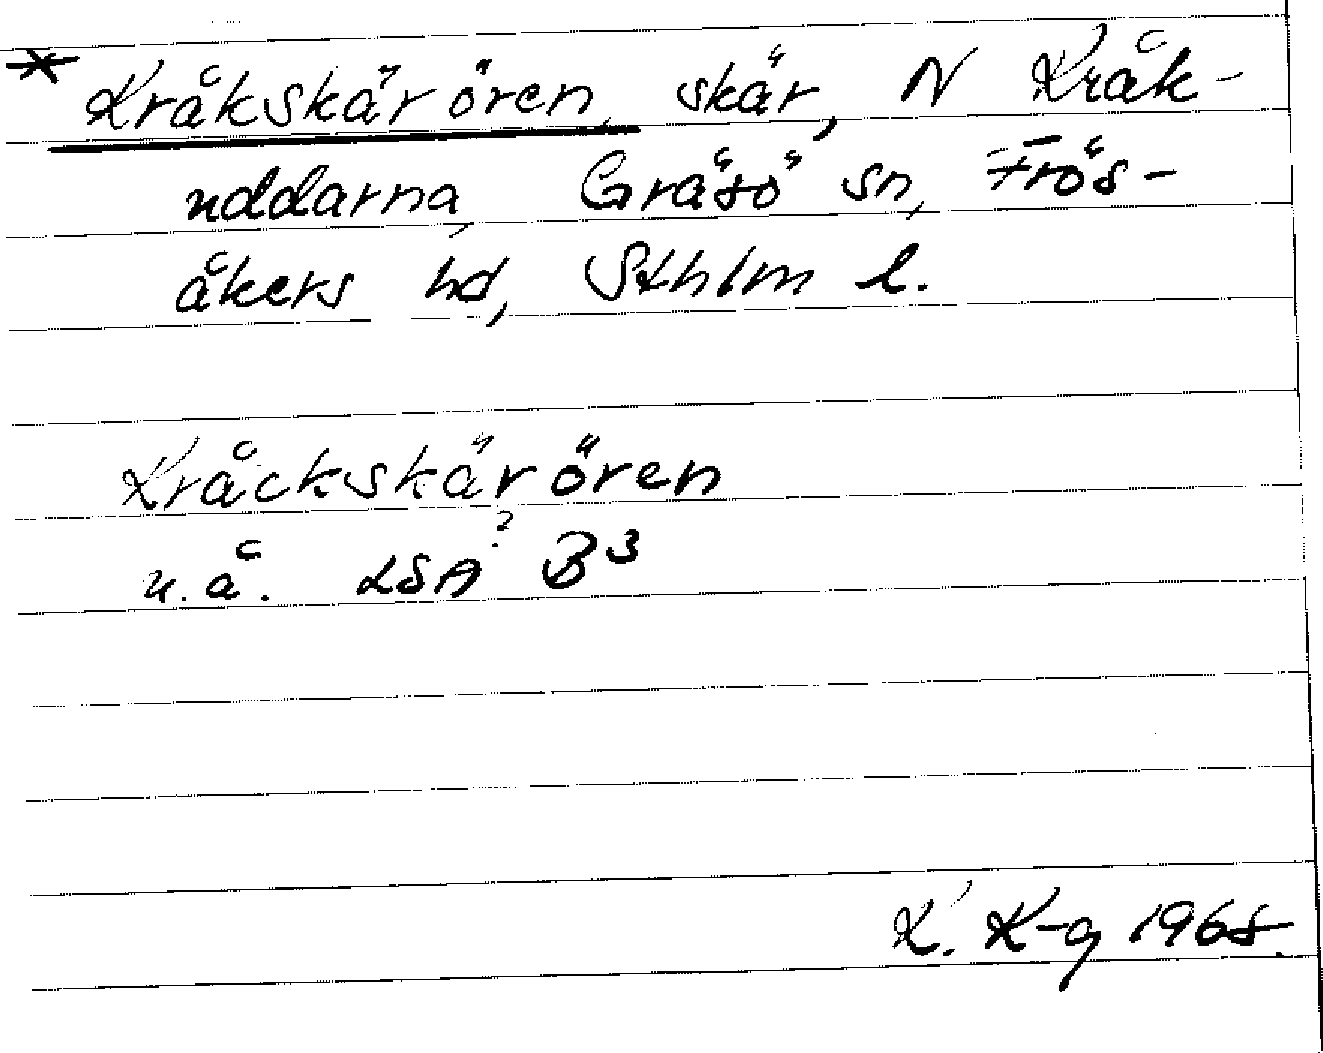 * Kråkskärören, skär, N Kråk-
uddarna, Gräsö sn, Frös-
åkers hd, Sthlm l.
Kråckskärören
u.å. LSA? B3
K. K-g 1968.